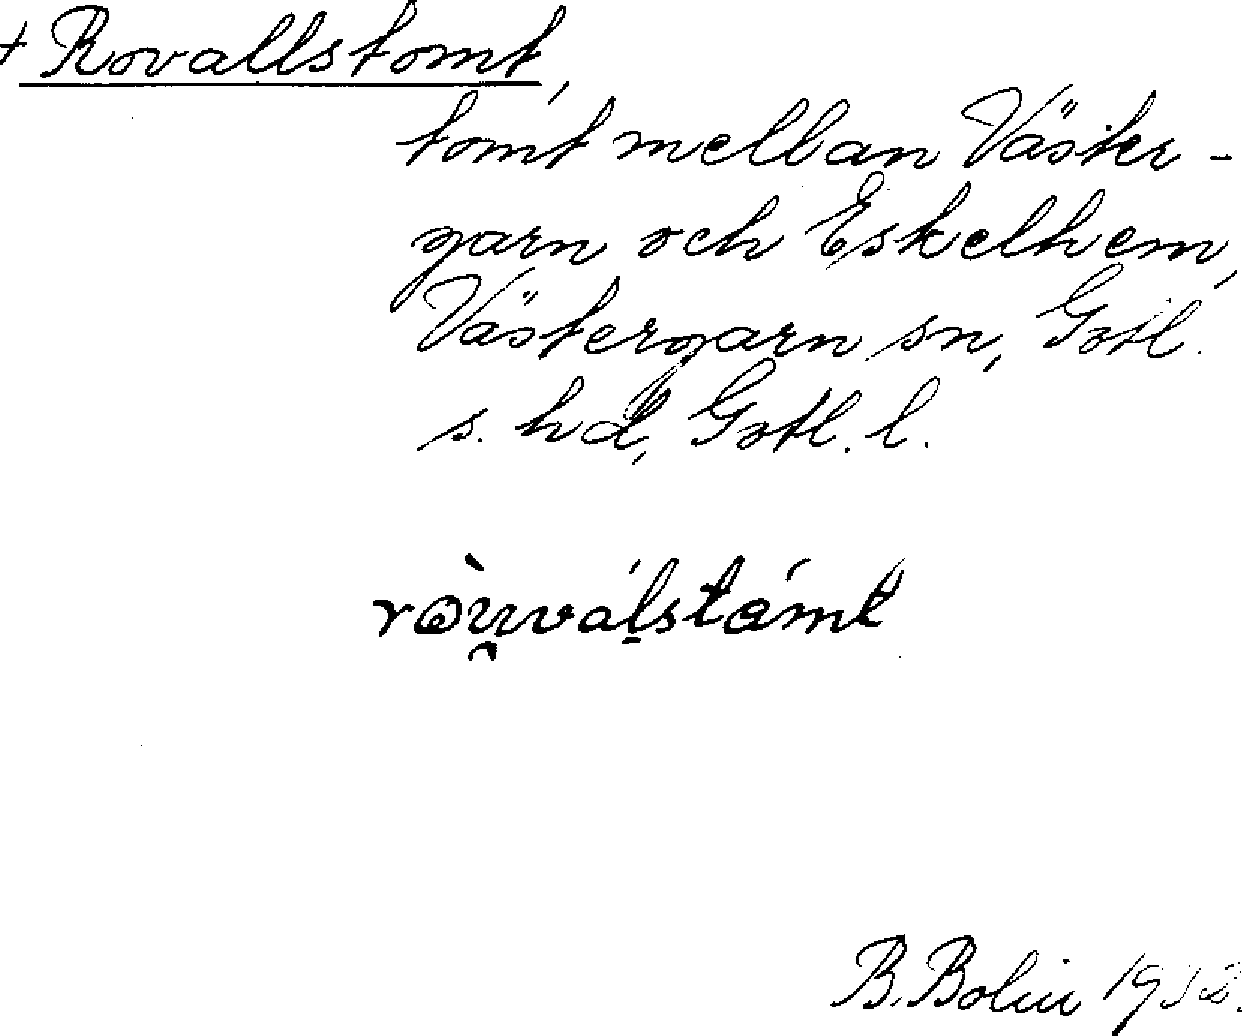 + Rovallstomt,
tomt mellan Väster-
garn och Eskelhem,
Västergarn sn, Gotl.
s. hd, Gotl. l.
B. Bolin 1932.